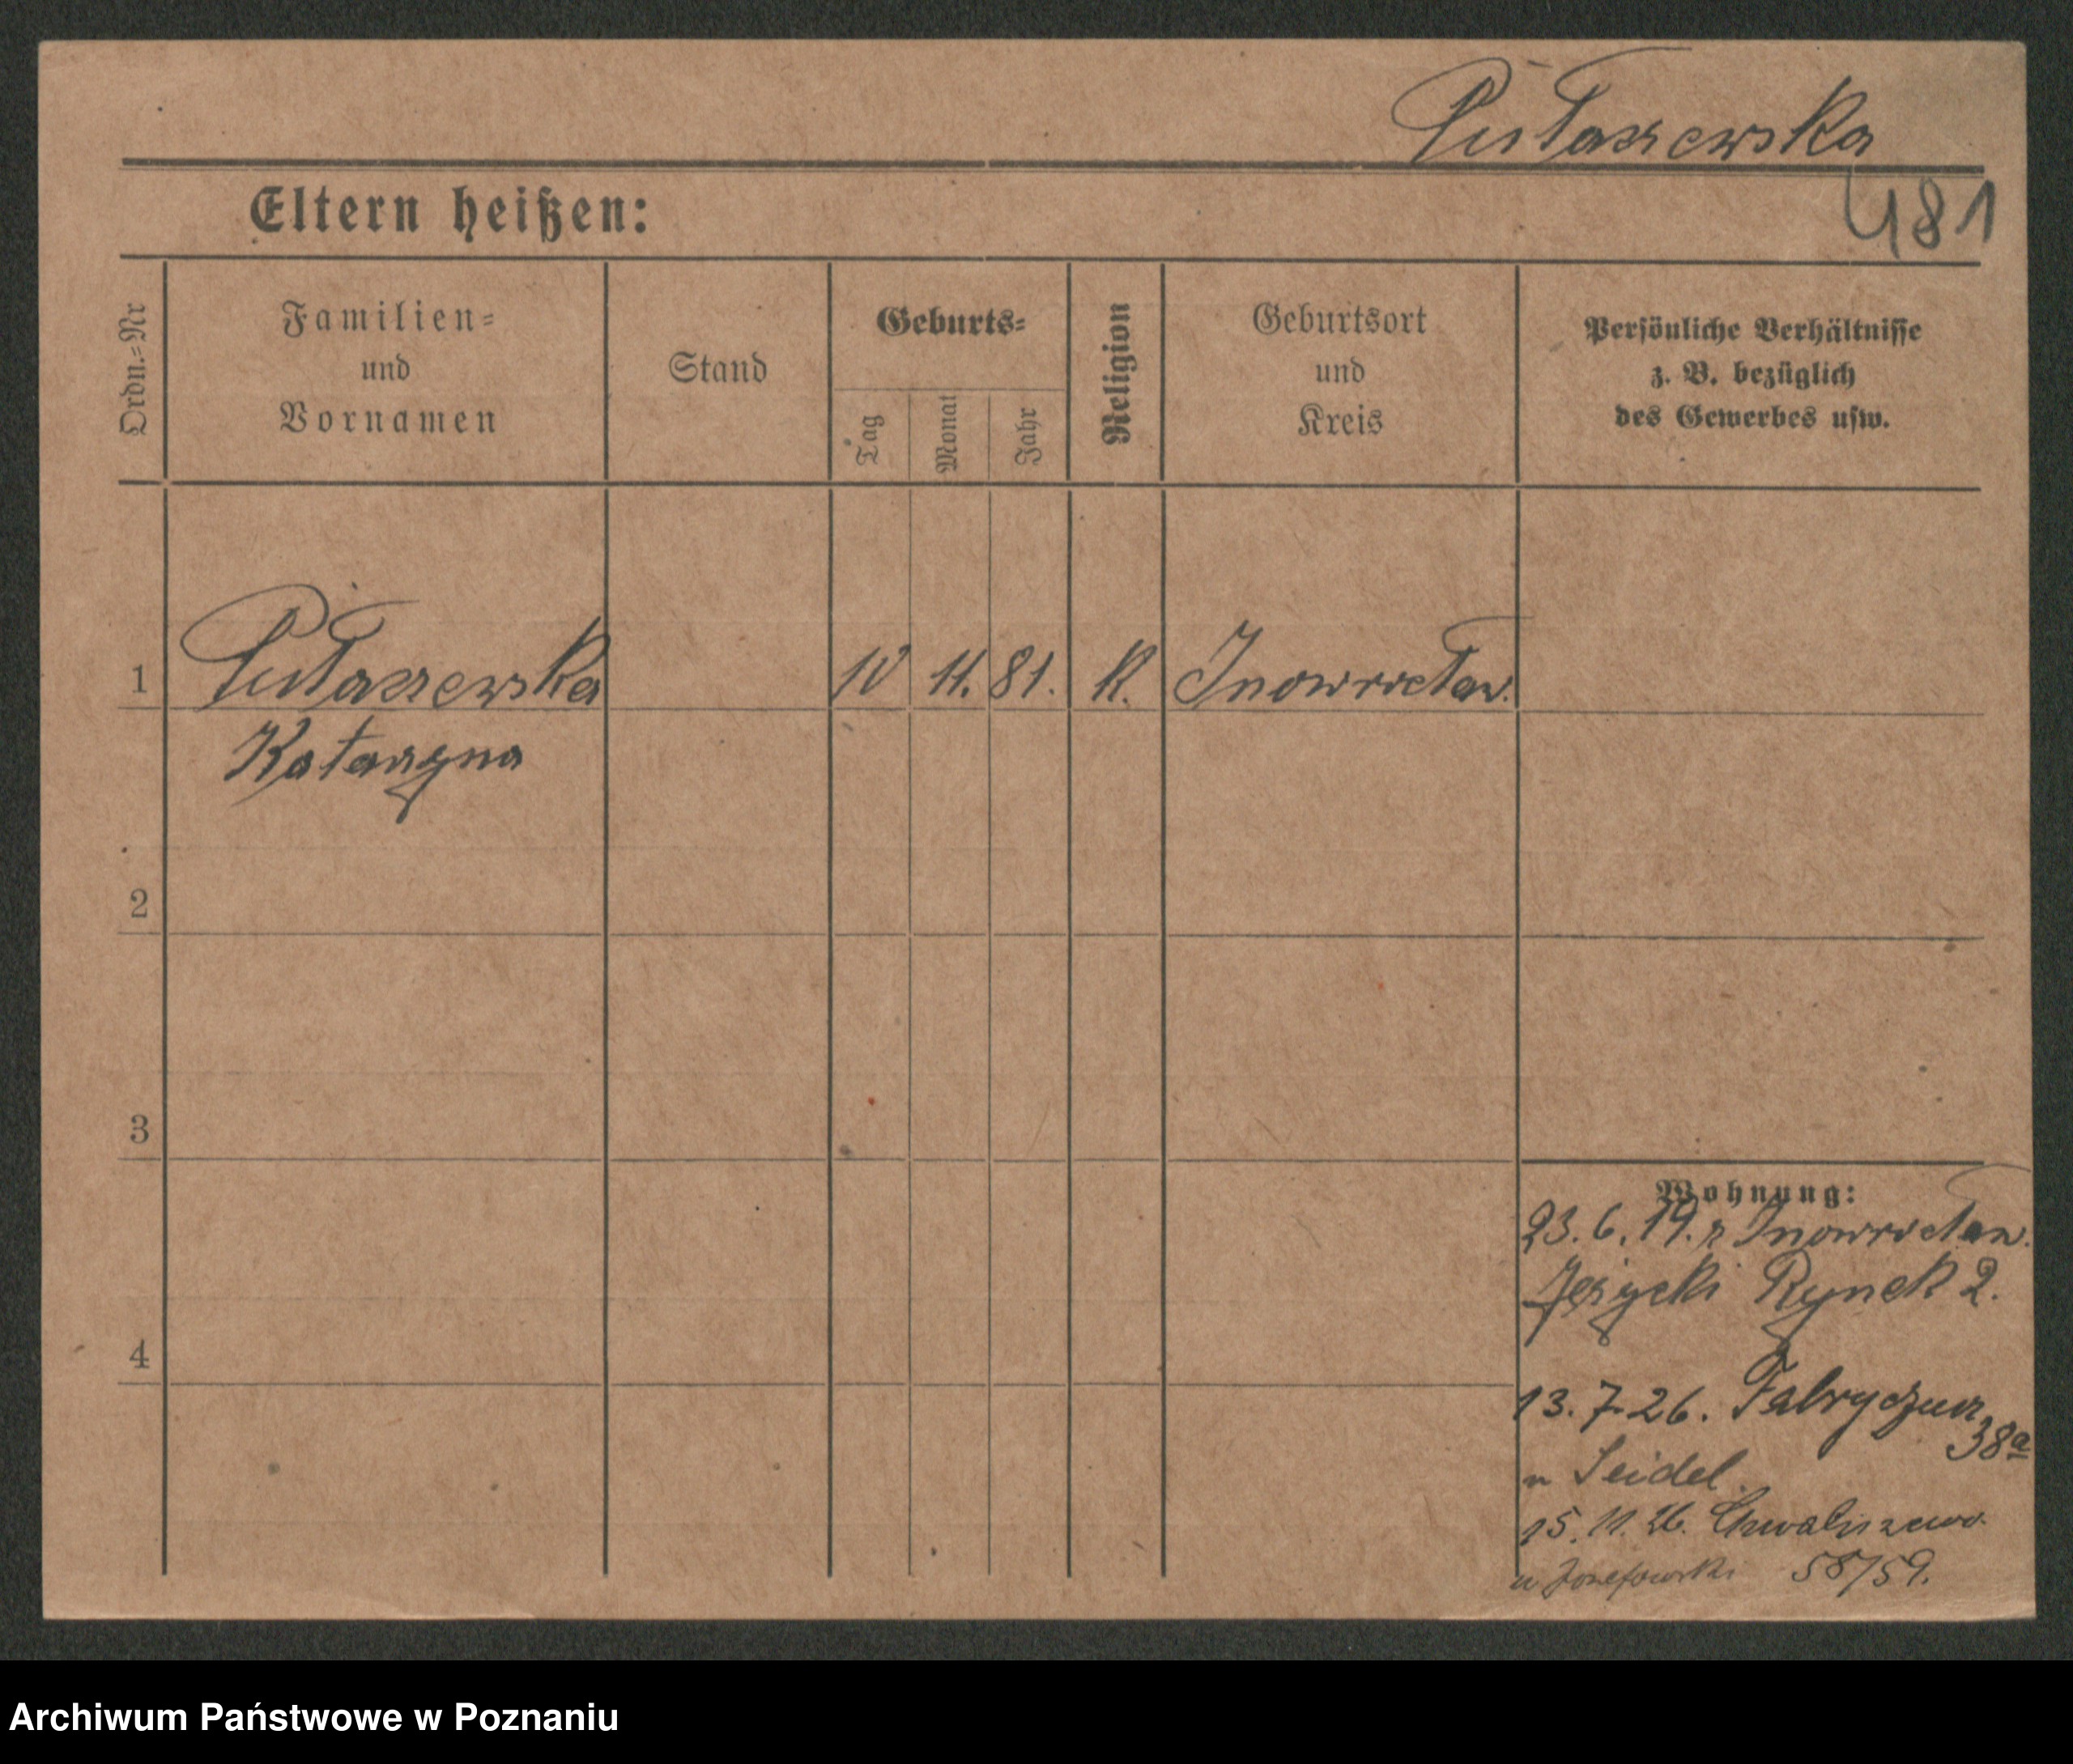 Pułaszewska
481
Eltern heißen:
Ordn.=Nr
Familien=
und
Vornamen
Stand
Geburts=
Tag
Monat
Jahr
Religion
Geburtsort
und
Kreis
Persönliche Verhältnisse
z. B. bezüglich
des Gewerbes usw.
1 Pułaszewska 10 11. 81. K. Inowrocław.
Katarzyna
2
3
4
Wohnung:
23. 6. 19. z Inowrocław.
Jeżycki Rynek 2.
13. 7. 26. Fabryczna
38a
u Seidel.
15. 11. 26. Chwaliszewo
u Józefowski 58/59.
Archiwum Państwowe w Poznaniu